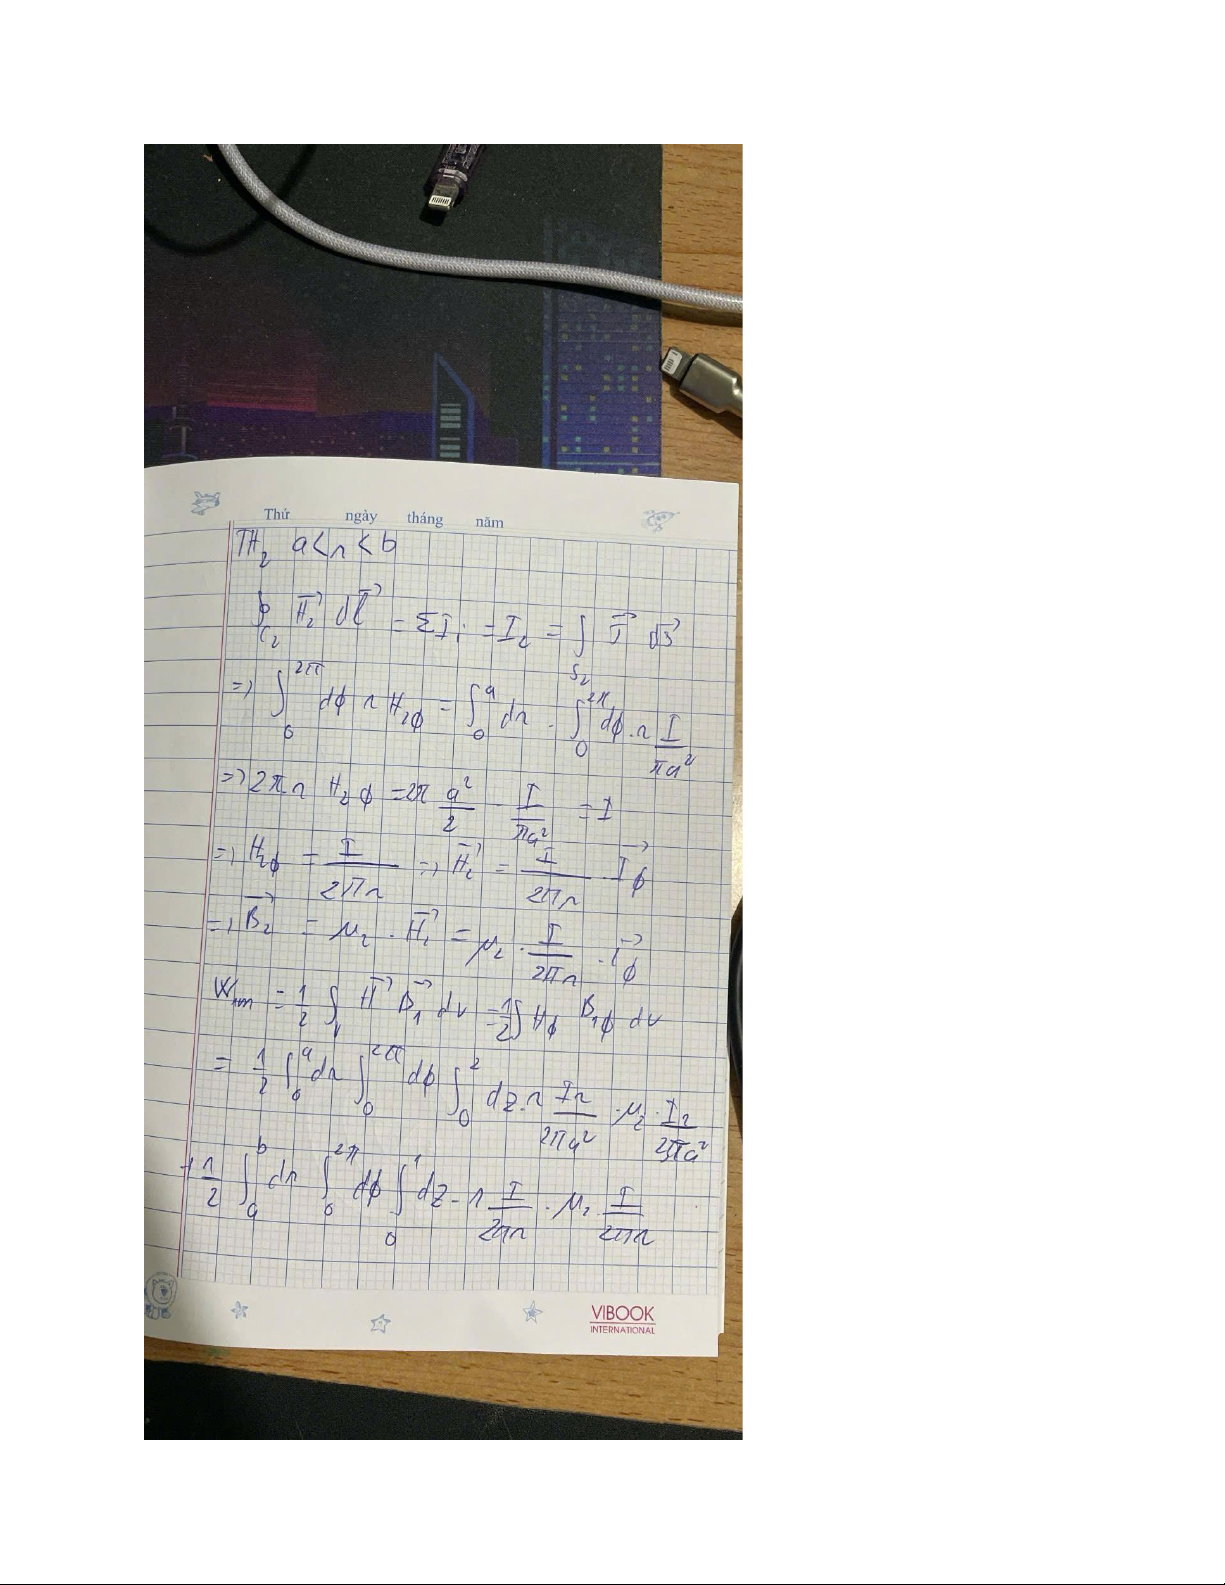 Thứ ngày tháng năm
TH₂ a < r < b
∮_C₂ H₂→ dl→ = ΣIᵢ = I₂ = ∫_S₂ J→ ds→
=> ∫₀^2π dϕ r H₂ϕ = ∫₀^a dr . ∫₀^2π dϕ . r I/πa²
=> 2π r H₂ϕ = 2π a²/2 . I/πa² = I
=> H₂ϕ = I/2πr => H₂→ = I/2πr . I→ϕ
=> B₂→ = μ₂ . H₁→ = μ₂ . I/2πr . i→ϕ
Wₘ = 1/2 ∫_V H→ B₁→ dv = 1/2 ∫ Hϕ B₁ϕ dv
= 1/2 ∫₀^a dr ∫₀^2π dϕ ∫₀^2 dz . r Ir/2πa² . μ₂ . Ir/2πa²
+ 1/2 ∫_a^b dr ∫₀^2π dϕ ∫₀^1 dz - r I/2πr . μ₂ . I/2πr
VIBOOK
INTERNATIONAL